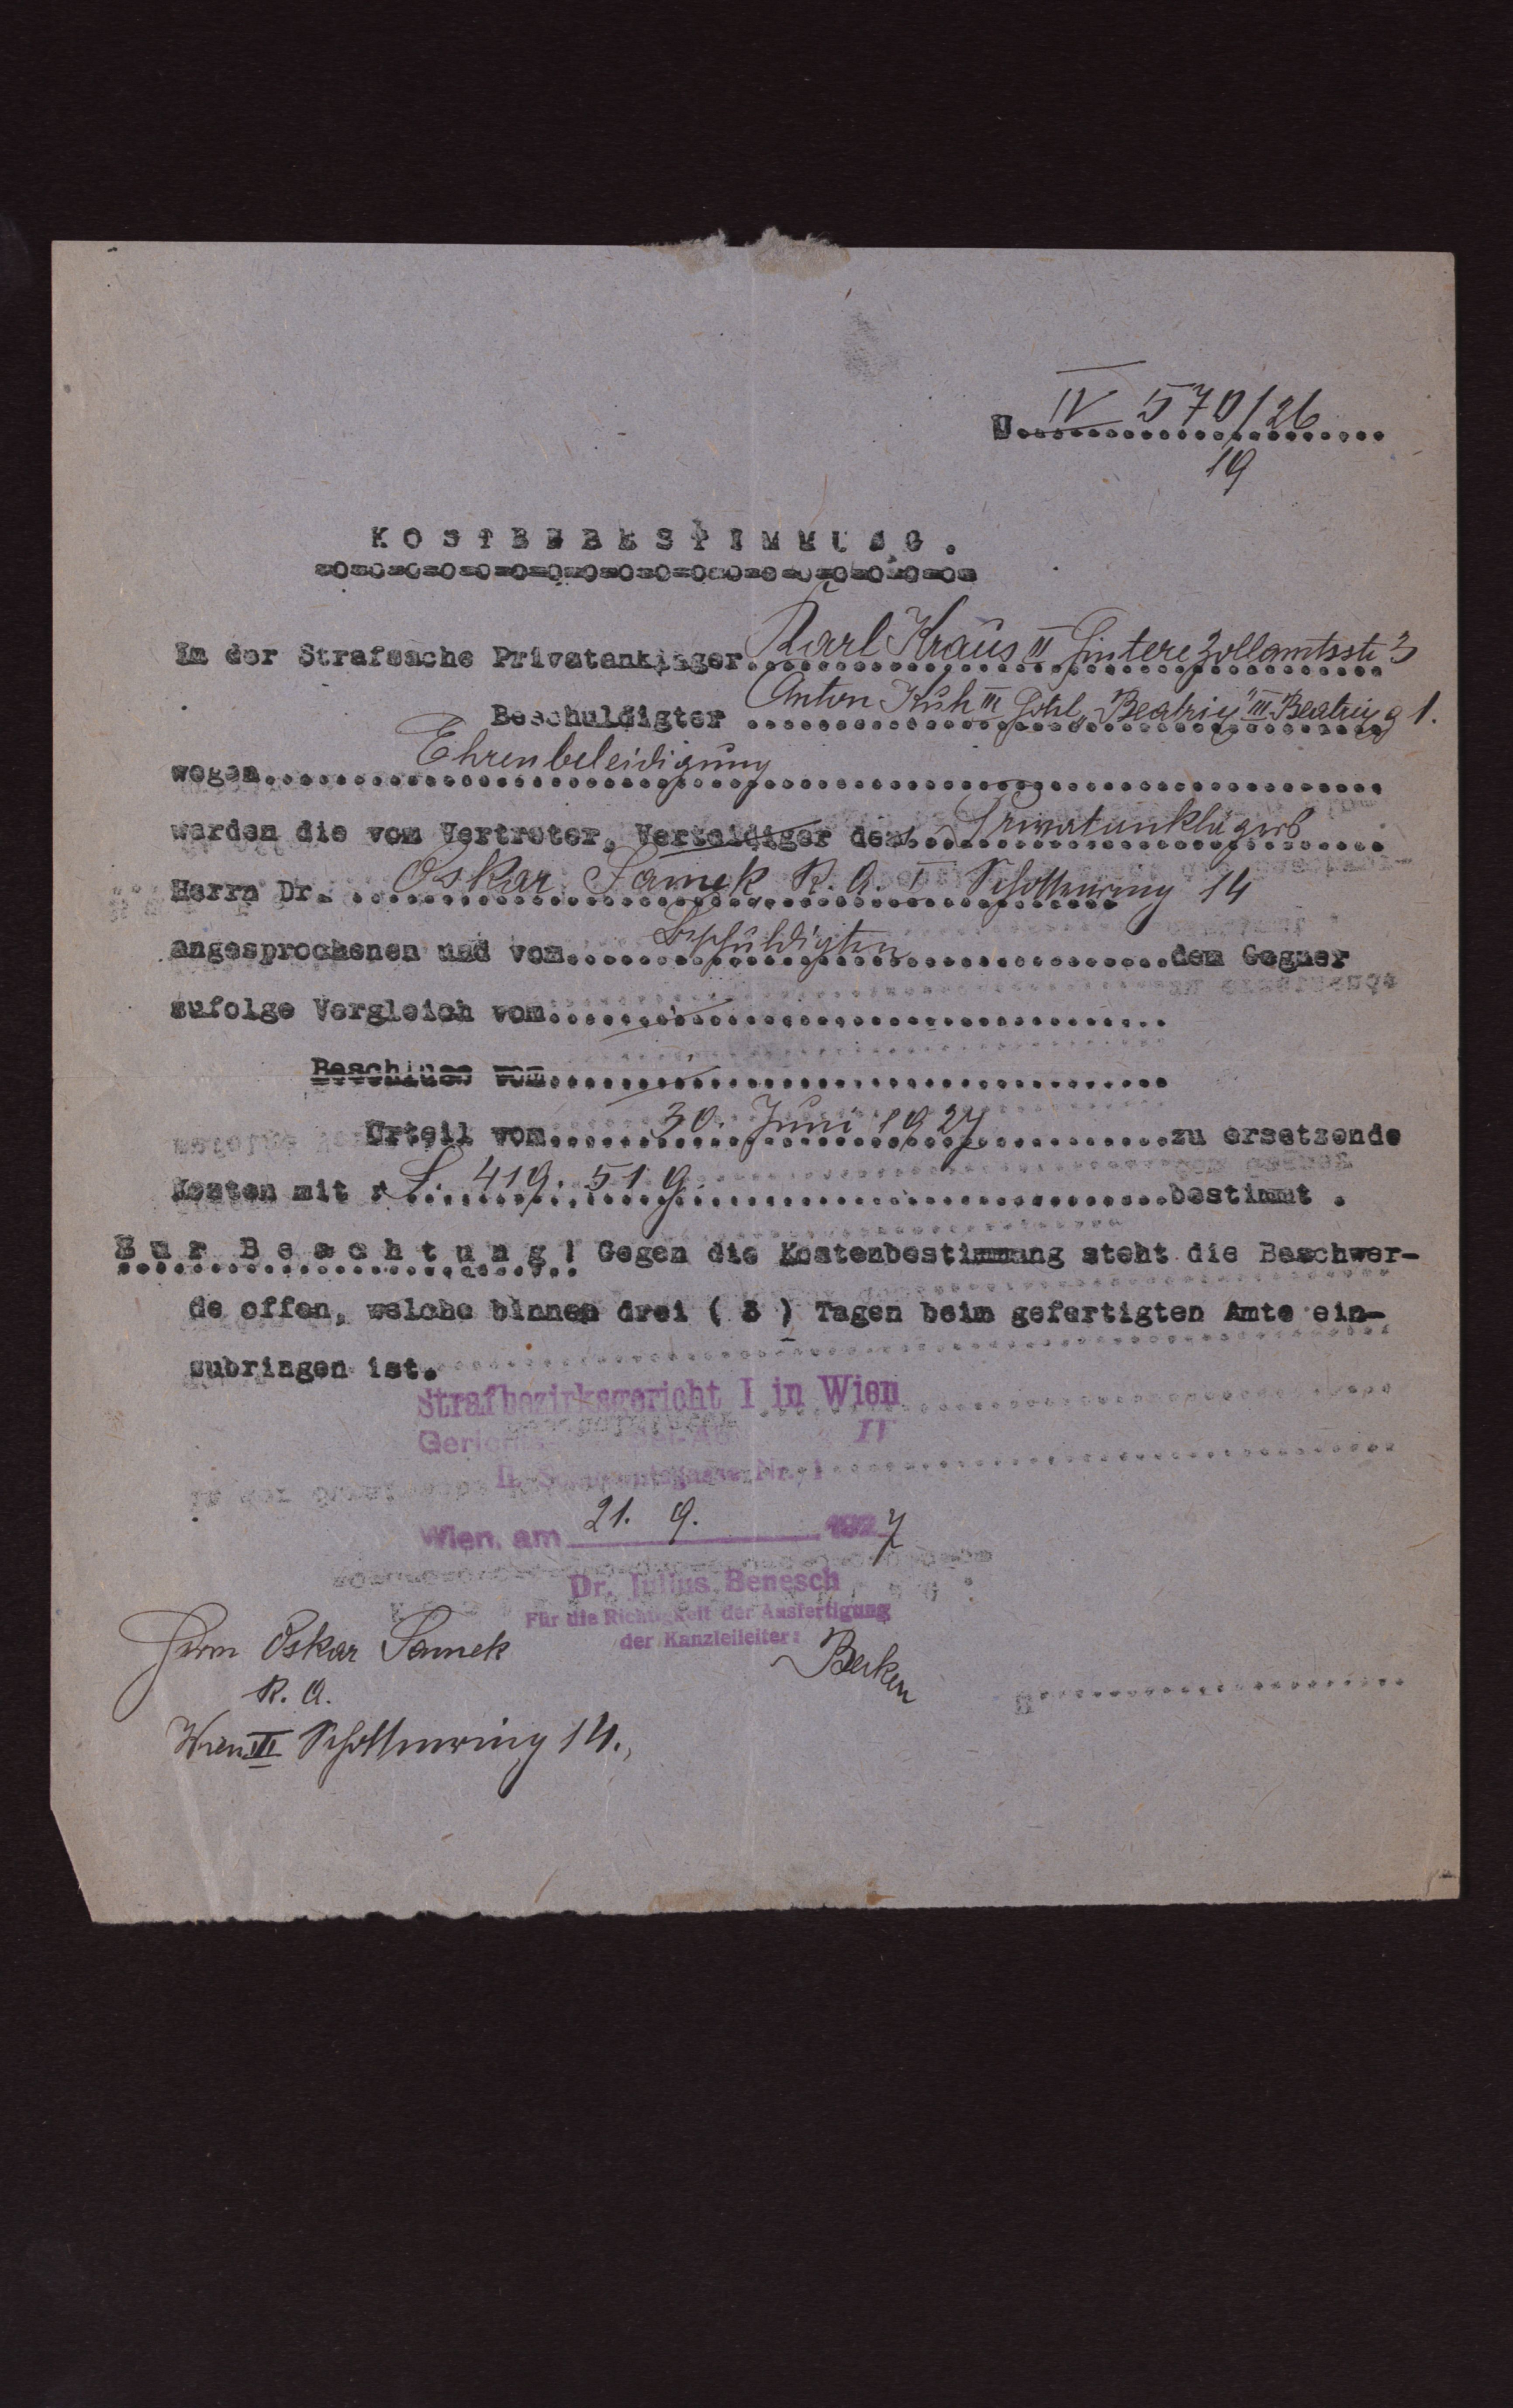 U IV 570/26
19
KOSTENBESTIMMUNG.
Im der Strafsache Privatankläger Karl Kraus III Hintere Zollamtsstr 3
Beschuldigter Anton Kuh III Hotel „Beatrix" III. Beatrixg 1.
wegen Ehrenbeleidigung
werden die vom Vertreter, Verteidiger des Privatanklägers
Herrn Dr. Oskar Samek R. A. I Schottenring 14
angesprochenen und vom Beschuldigten dem Gegner
zufolge Vergleich vom
Beschluss vom
Urteil vom 30. Juni 1927 zu ersetzende
Kosten mit S. 419. 51 g bestimmt .
Zur Beachtung! Gegen die Kostenbestimmung steht die Beschwer-
de offen, welche binnen drei ( 3 ) Tagen beim gefertigten Amte ein-
zubringen ist.
Strafbezirksgericht I in Wien
IV
Nr. 1
Wien, am 21. 9. 1927
Dr. Julius Benesch
Für die Richtigkeit der Ausfertigung
der Kanzleileiter:
Herrn Oskar Samek
R. A.
Wien III Schottenring 14.,